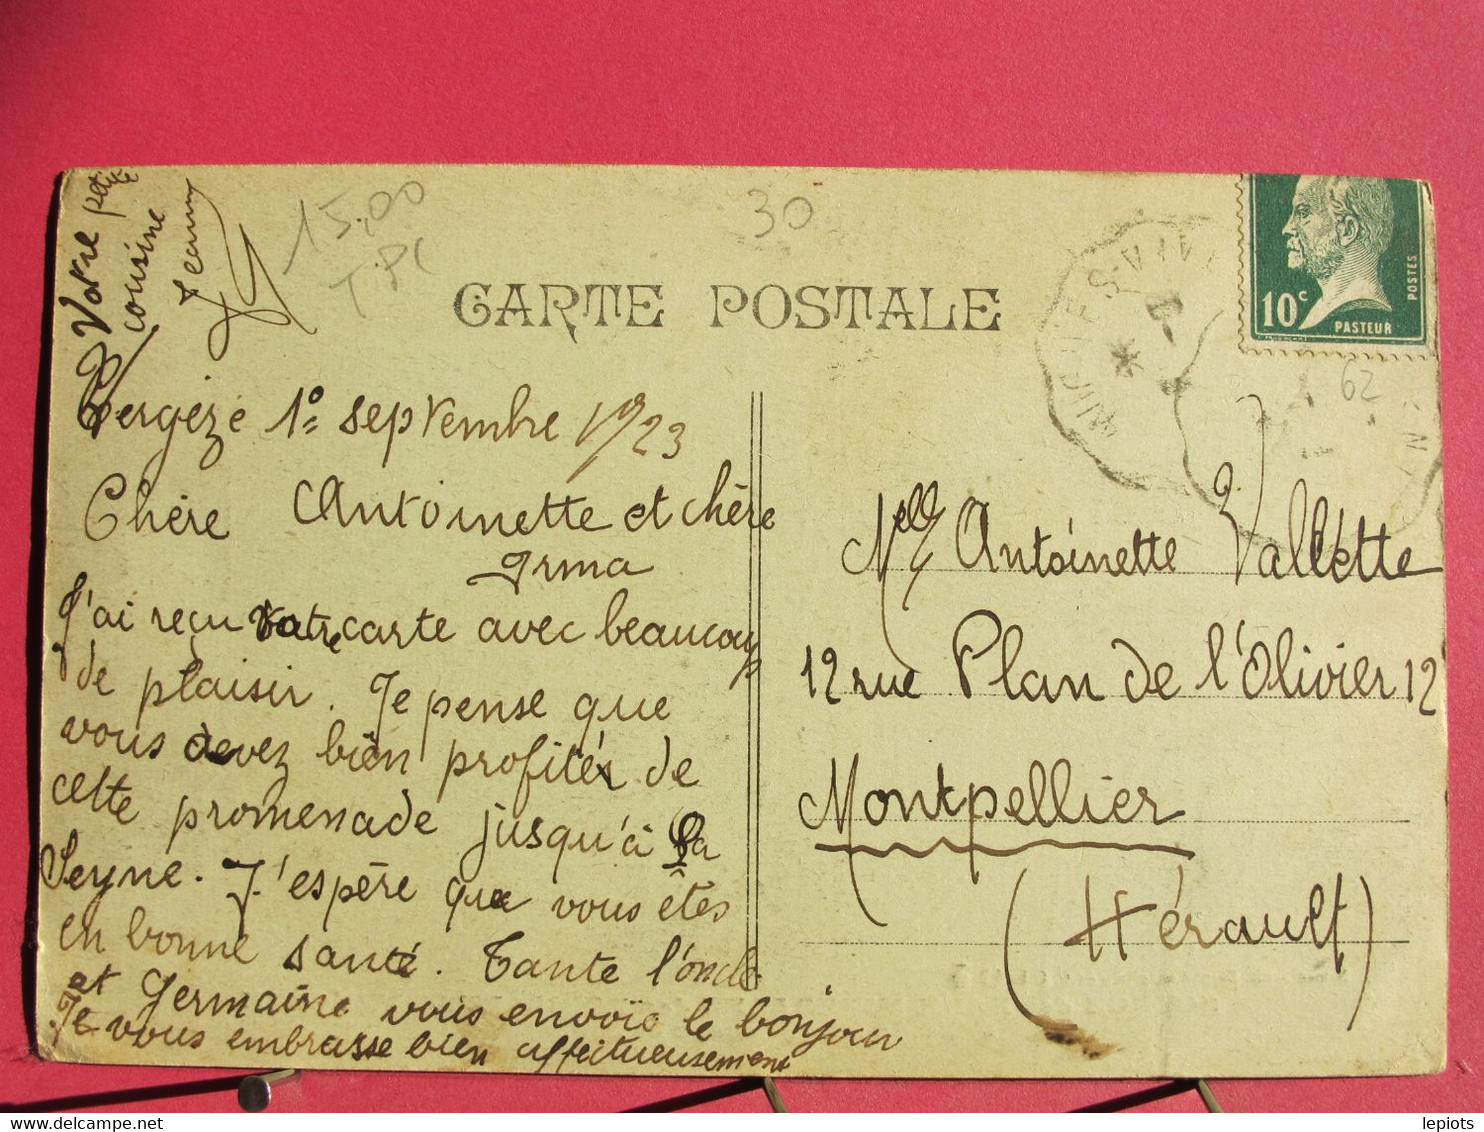 Votre petite
cousine
Jeanne
15,00
T.PC
30
CARTE POSTALE
10c
PASTEUR
POSTES
62
Vergèze 1º septembre 1923
Chère Antoinette et chère
Irma
J'ai reçu votre carte avec beaucoup
de plaisir. Je pense que
vous devez bien profiter de
cette promenade jusqu'à La
Seyne. J'espère que vous êtes
en bonne santé. Tante l'oncle
et Germaine vous envoie le bonjour
Je vous embrasse bien affectueusement
Melle Antoinette Vallette
12 rue Plan de l'Olivier 12
Montpellier
(Hérault)
lepiots